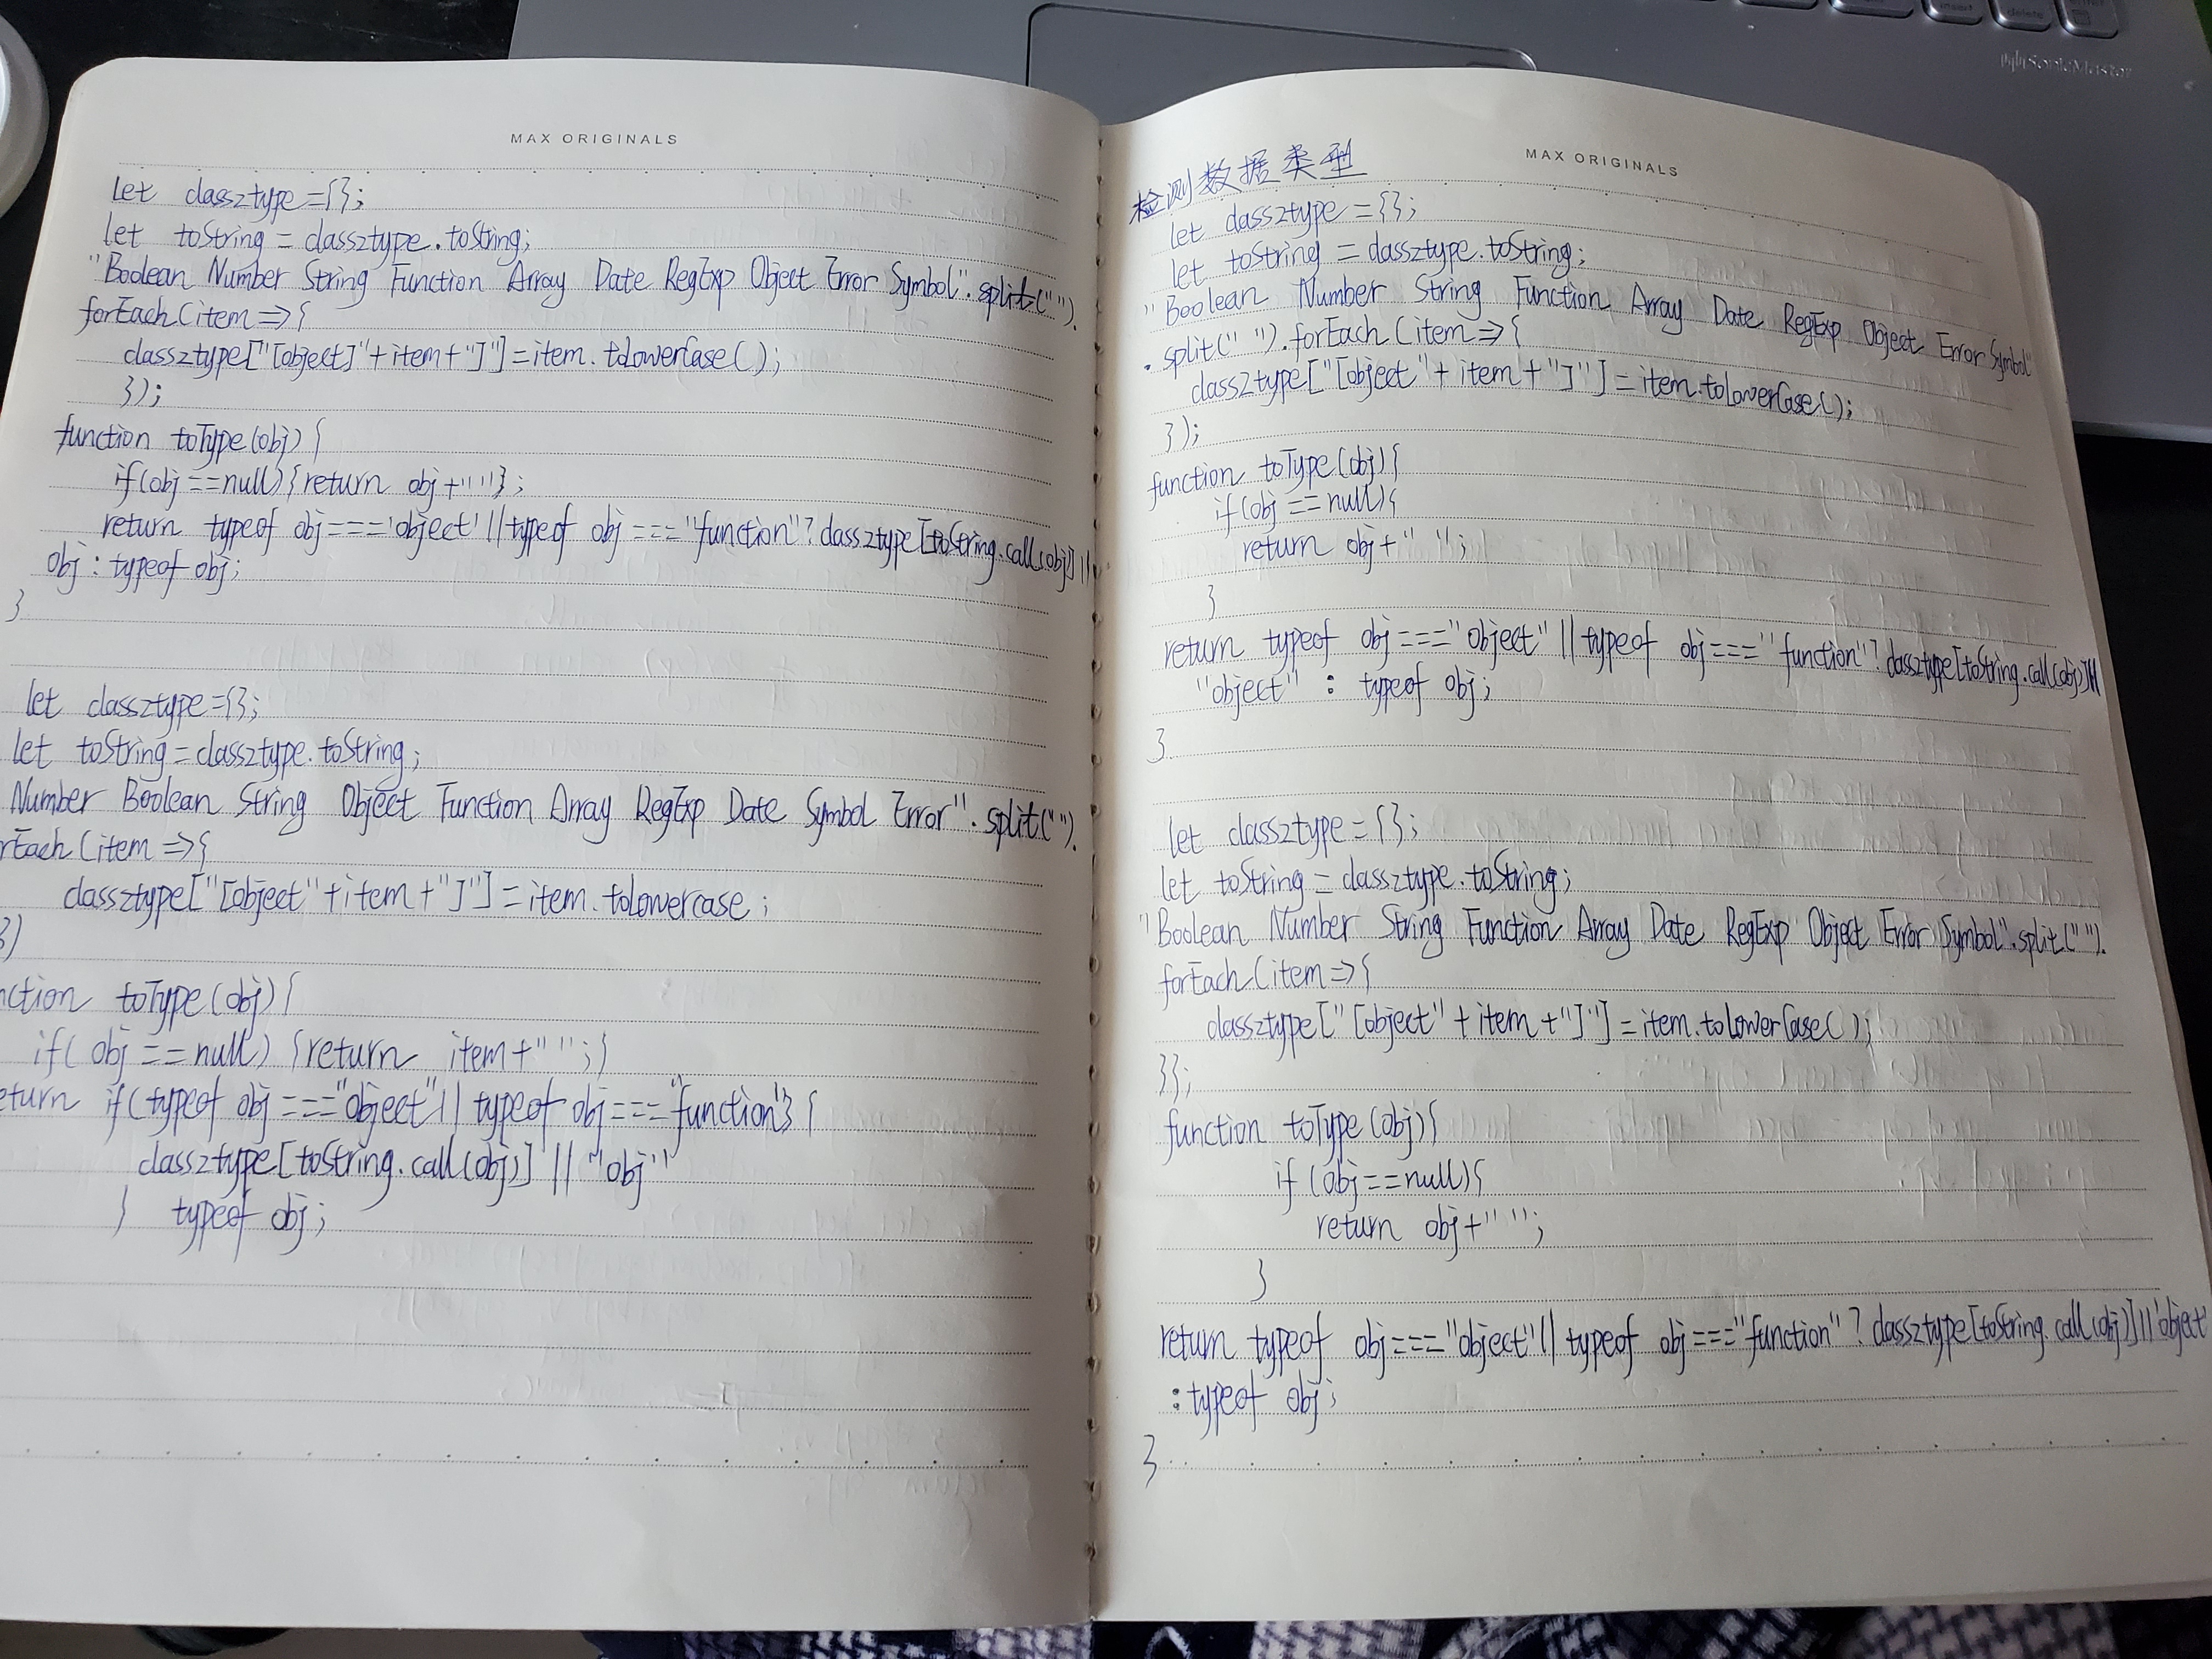 MAX ORIGINALS
let classztype={};
let toString = classztype.toString;
"Boolean Number String Function Array Date RegExp Object Error Symbol".split(" ").
forEach(item=>{
classztype["[object]"+item+"]"]=item.toLowerCase();
});
function toType(obj){
if(obj==null){return obj+""};
return typeof obj==='object'||typeof obj==="function"?classztype[toString.call(obj]||
obj:typeof obj;
}
let classztype={};
let toString=classztype.toString;
Number Boolean String Object Function Array RegExp Date Symbol Error".split(" ").
rEach(item=>{
classztype["[object"+item+"]"]=item.tolowercase;
})
nction toType(obj){
if(obj==null){return item+"";}
eturn if(typeof obj==="object"||typeof obj==="function"}{
classztype[toString.call(obj)]||"obj"
} typeof obj;
MAX ORIGINALS
检测数据类型
let classztype={};
let toString = classztype.toString;
"Boolean Number String Function Array Date RegExp Object Error Symbol"
.split(" ").forEach(item=>{
classztype["[object"+item+"]"]=item.toLowerCase();
});
function toType(obj){
if(obj==null){
return obj+" ";
}
return typeof obj==="object"||typeof obj==="function"?classztype[toString.call(obj)]||
"object" : typeof obj;
}
let classztype={};
let toString=classztype.toString;
"Boolean Number String Function Array Date RegExp Object Error Symbol".split(" ").
forEach(item=>{
classztype["[object"+item+"]"]=item.toLowerCase();
}};
function toType(obj){
if(obj==null){
return obj+" ";
}
return typeof obj==="object"||typeof obj==="function"?classztype[toString.call(obj)]||'object
:typeof obj;
}
SonicMaster
insert
delete